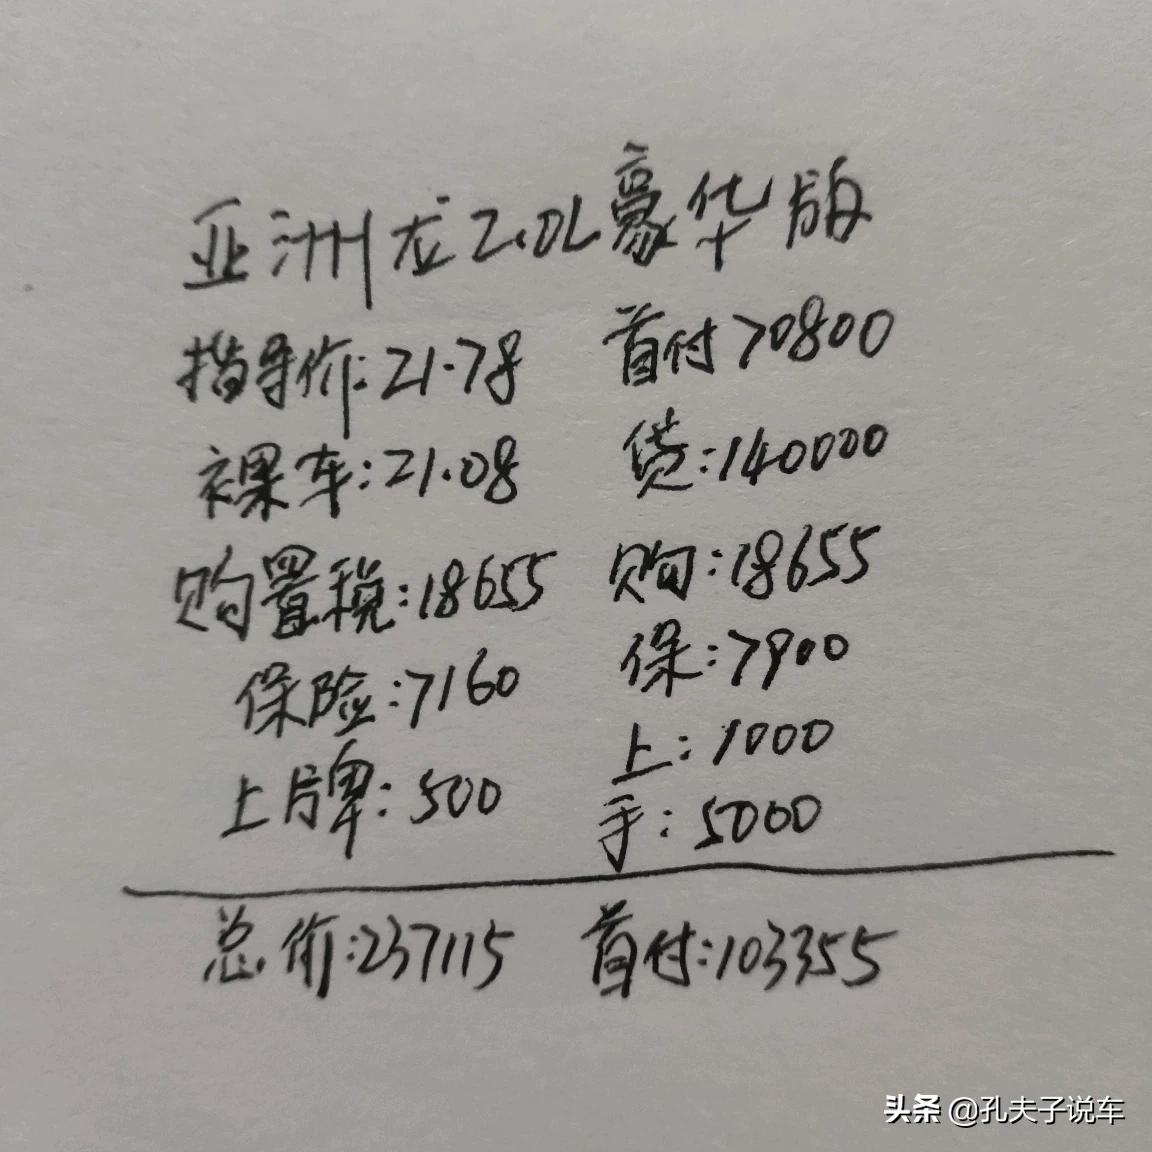 亚洲龙2.0L豪华版
指导价:21.78 首付70800
裸车:21.08 贷:140000
购置税:18655 购:18655
保险:7160 保:7900
上牌:500 上:1000
手:5000
总价:237115 首付:103355
头条 @孔夫子说车